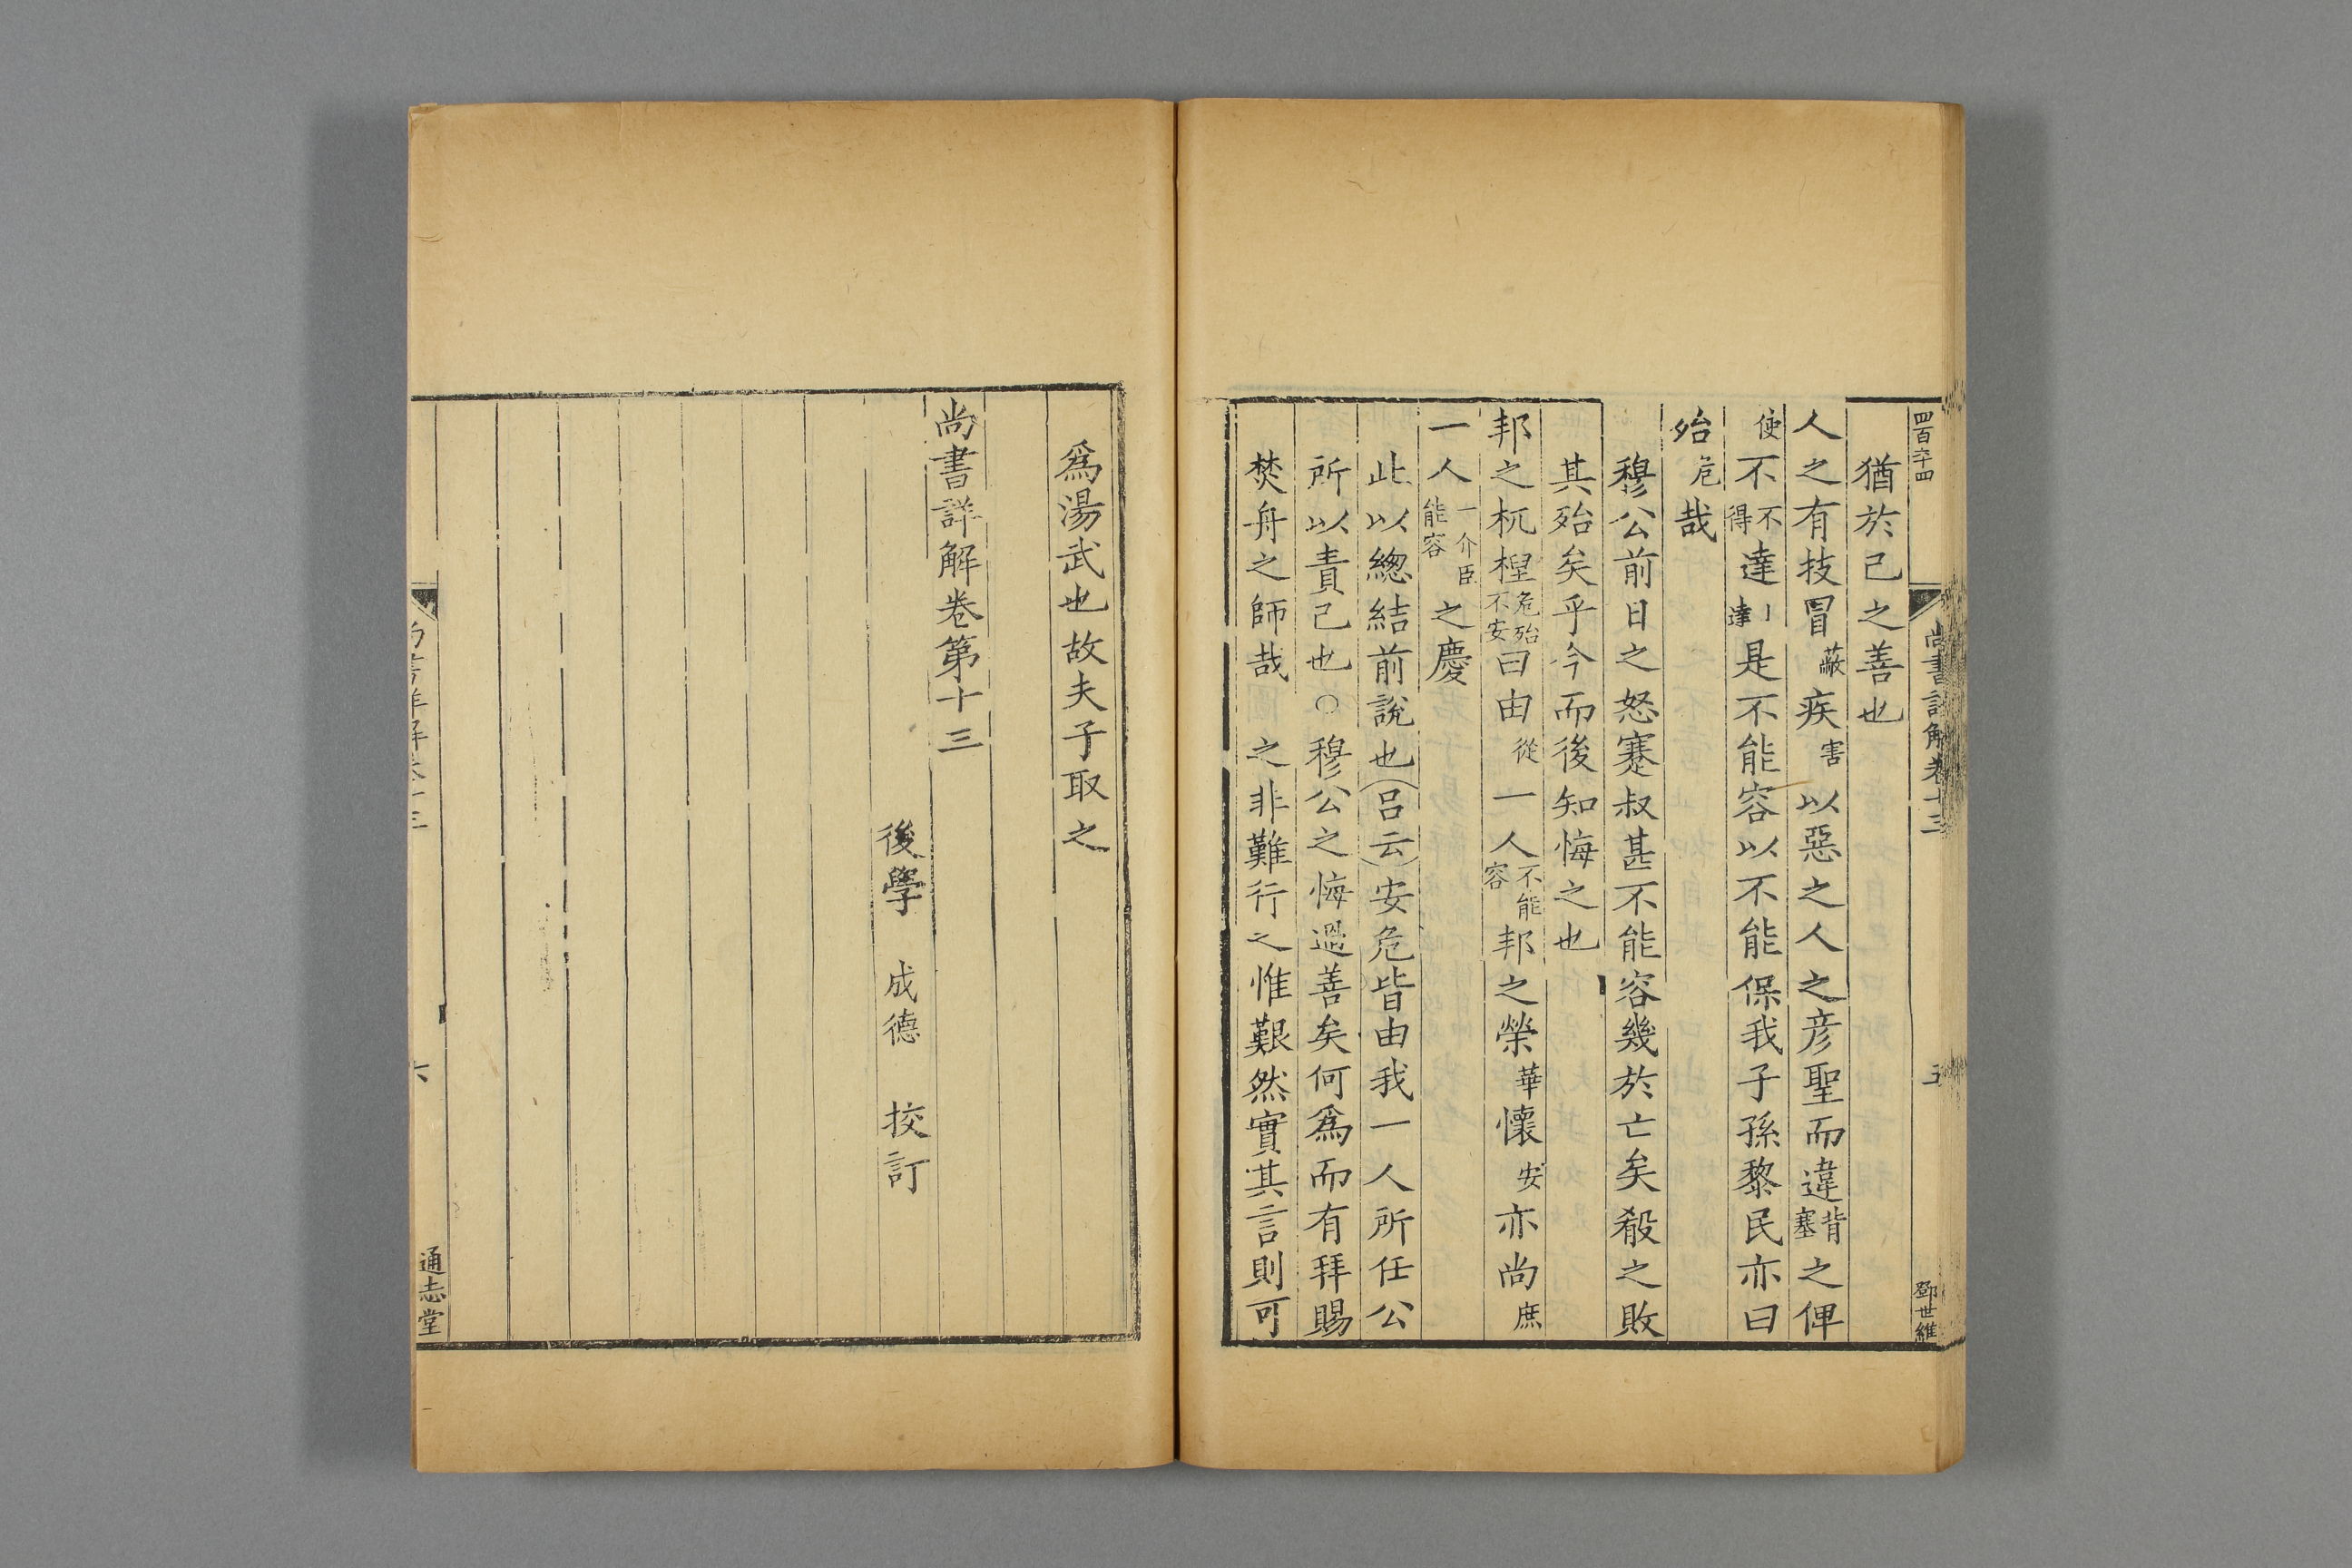 四百六十四
尚書詳解卷十三
五
鄧世維
猶於己之善也
人之有技冒蔽疾害以惡之人之彥聖而違背塞之俾
使不不得達丨達是不能容以不能保我子孫黎民亦曰
殆危哉
穆公前日之怒蹇叔甚不能容幾於亡矣殽之敗
其殆矣乎今而後知悔之也
邦之杌梎危殆不安曰由從一人不能容邦之榮華懷安亦尚庶
一人一介臣能容之慶
此以總結前說也（呂云）安危皆由我一人所任公
所以責己也○穆公之悔過善矣何爲而有拜賜
焚舟之師哉之非難行之惟艱然實其言則可
爲湯武也故夫子取之
尚書詳解卷第十三
後學 成德 挍訂
六
通志堂